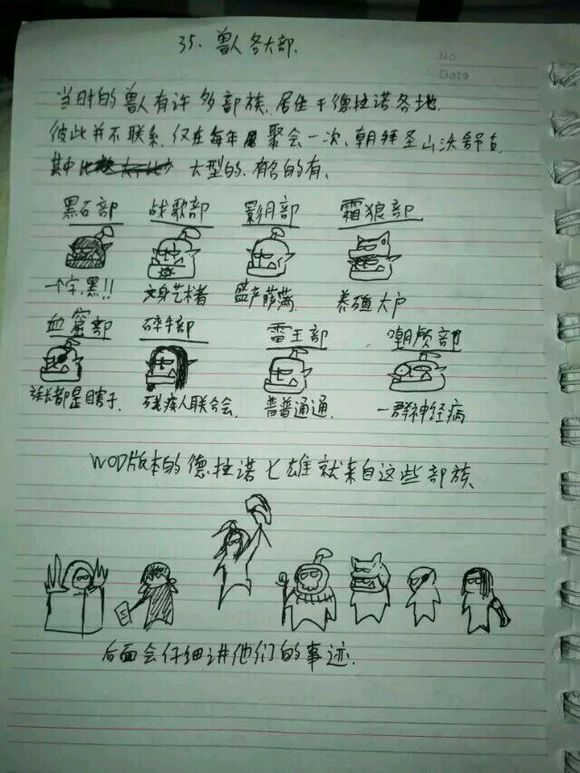 35. 兽人各大部.
No
Date
当时的兽人有许多部族.居住于德拉诺各地.
彼此并不联系.仅在每年聚会一次、朝拜圣山沃舒古
其中 大型的.有名的有、
黑石部 战歌部 影月部 霜狼部
一个字.黑!! 文身艺术者 盛产萨满. 养殖大户
血窟部 碎手部 雷王部 嘲颅部
族长都是瞎子. 残疾人联合会. 普普通通. 一群神经病
WOD版本的德拉诺七雄就来自这些部族.
后面会仔细讲他们的事迹.